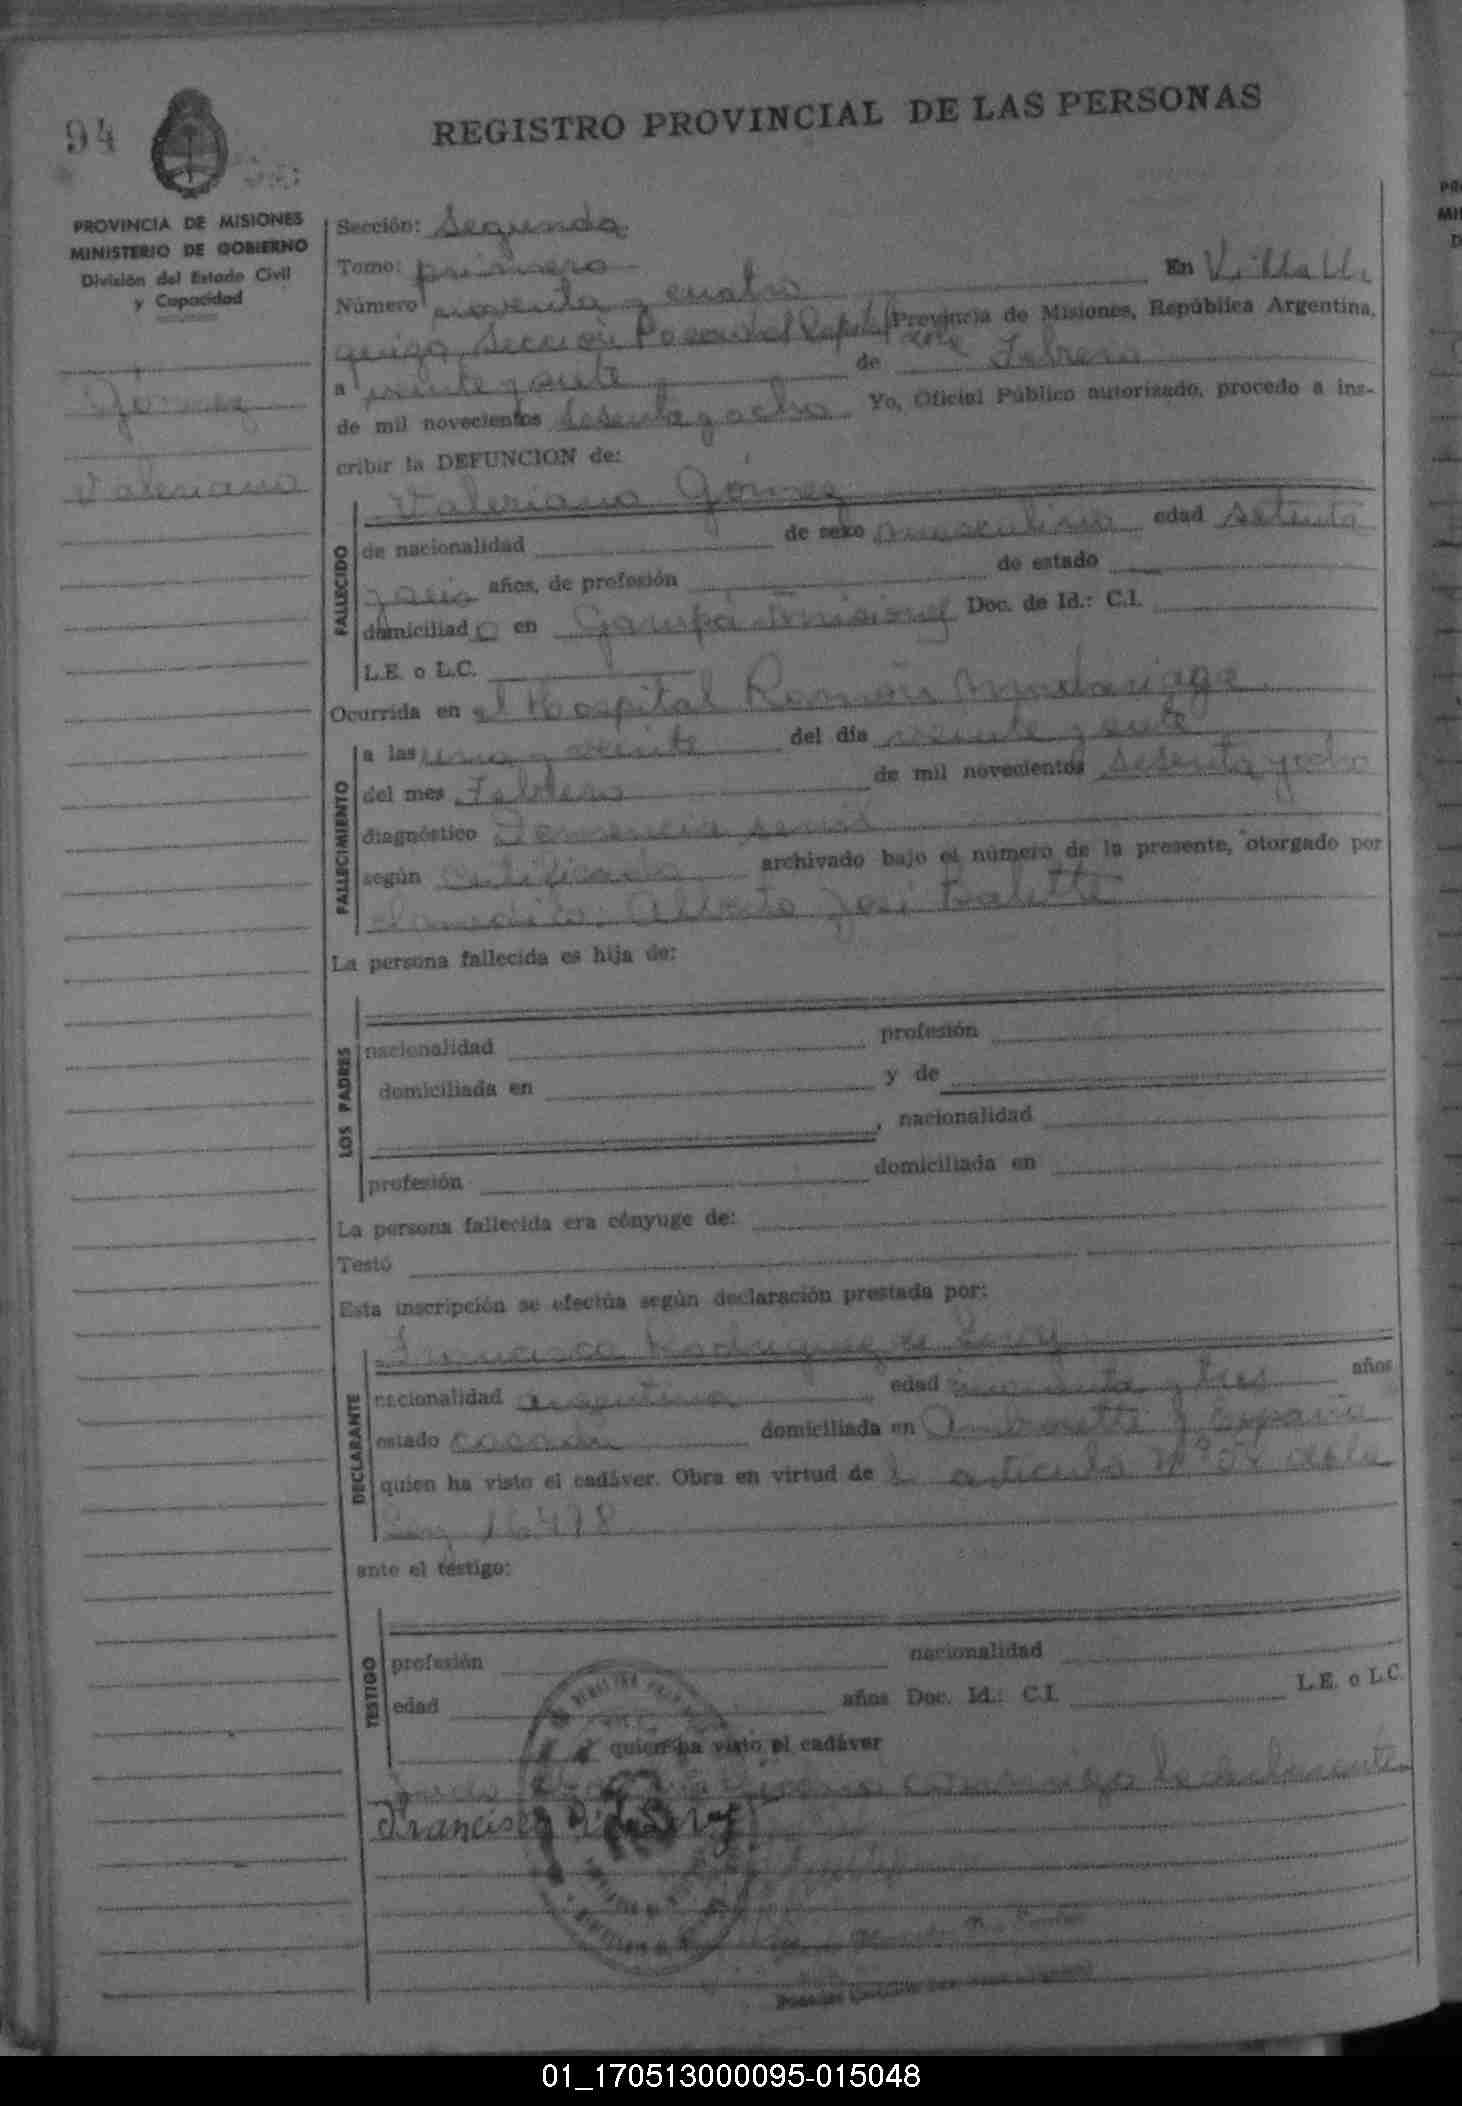 94
REGISTRO PROVINCIAL DE LAS PERSONAS
PROVINCIA DE MISIONES
MINISTERIO DE GOBIERNO
División del Estado Civil
y Capacidad
Gómez
Valeriano
Sección: Segunda
Tomo: primero
Número noventa y cuatro En Villa Ur
quiza, Sección Posadas Capital Provincia de Misiones, República Argentina,
a veinte y siete de Febrero
de mil novecientos sesenta y ocho Yo, Oficial Público autorizado, procedo a ins-
cribir la DEFUNCION de:
FALLECIDO
Valeriano Gómez
de nacionalidad de sexo masculino edad setenta
y seis años, de profesión de estado
domiciliado en Garupá Misiones Doc. de Id.: C.I.
L.E. o L.C.
Ocurrida en el Hospital Ramón Madariaga
FALLECIMIENTO
a las una y veinte del día veinte y siete
del mes Febrero de mil novecientos sesenta y ocho
diagnóstico Demencia senil
según certificado archivado bajo el número de la presente, otorgado por
Alberto José
La persona fallecida es hija de:
LOS PADRES
nacionalidad profesión
domiciliada en y de
, nacionalidad
profesión domiciliada en
La persona fallecida era cónyuge de:
Testó
Esta inscripción se efectúa según declaración prestada por:
DECLARANTE
Francisca Rodriguez de
nacionalidad argentina edad cincuenta y tres años
estado casada domiciliada en y España
quien ha visto el cadáver. Obra en virtud de articulo de la
Ley 16.478
ante el testigo:
TESTIGO
profesión nacionalidad
edad años Doc. Id.: C.I. L.E. o L.C.
quien ha visto el cadáver
conmigo la declarante
Francisca
01_170513000095-015048